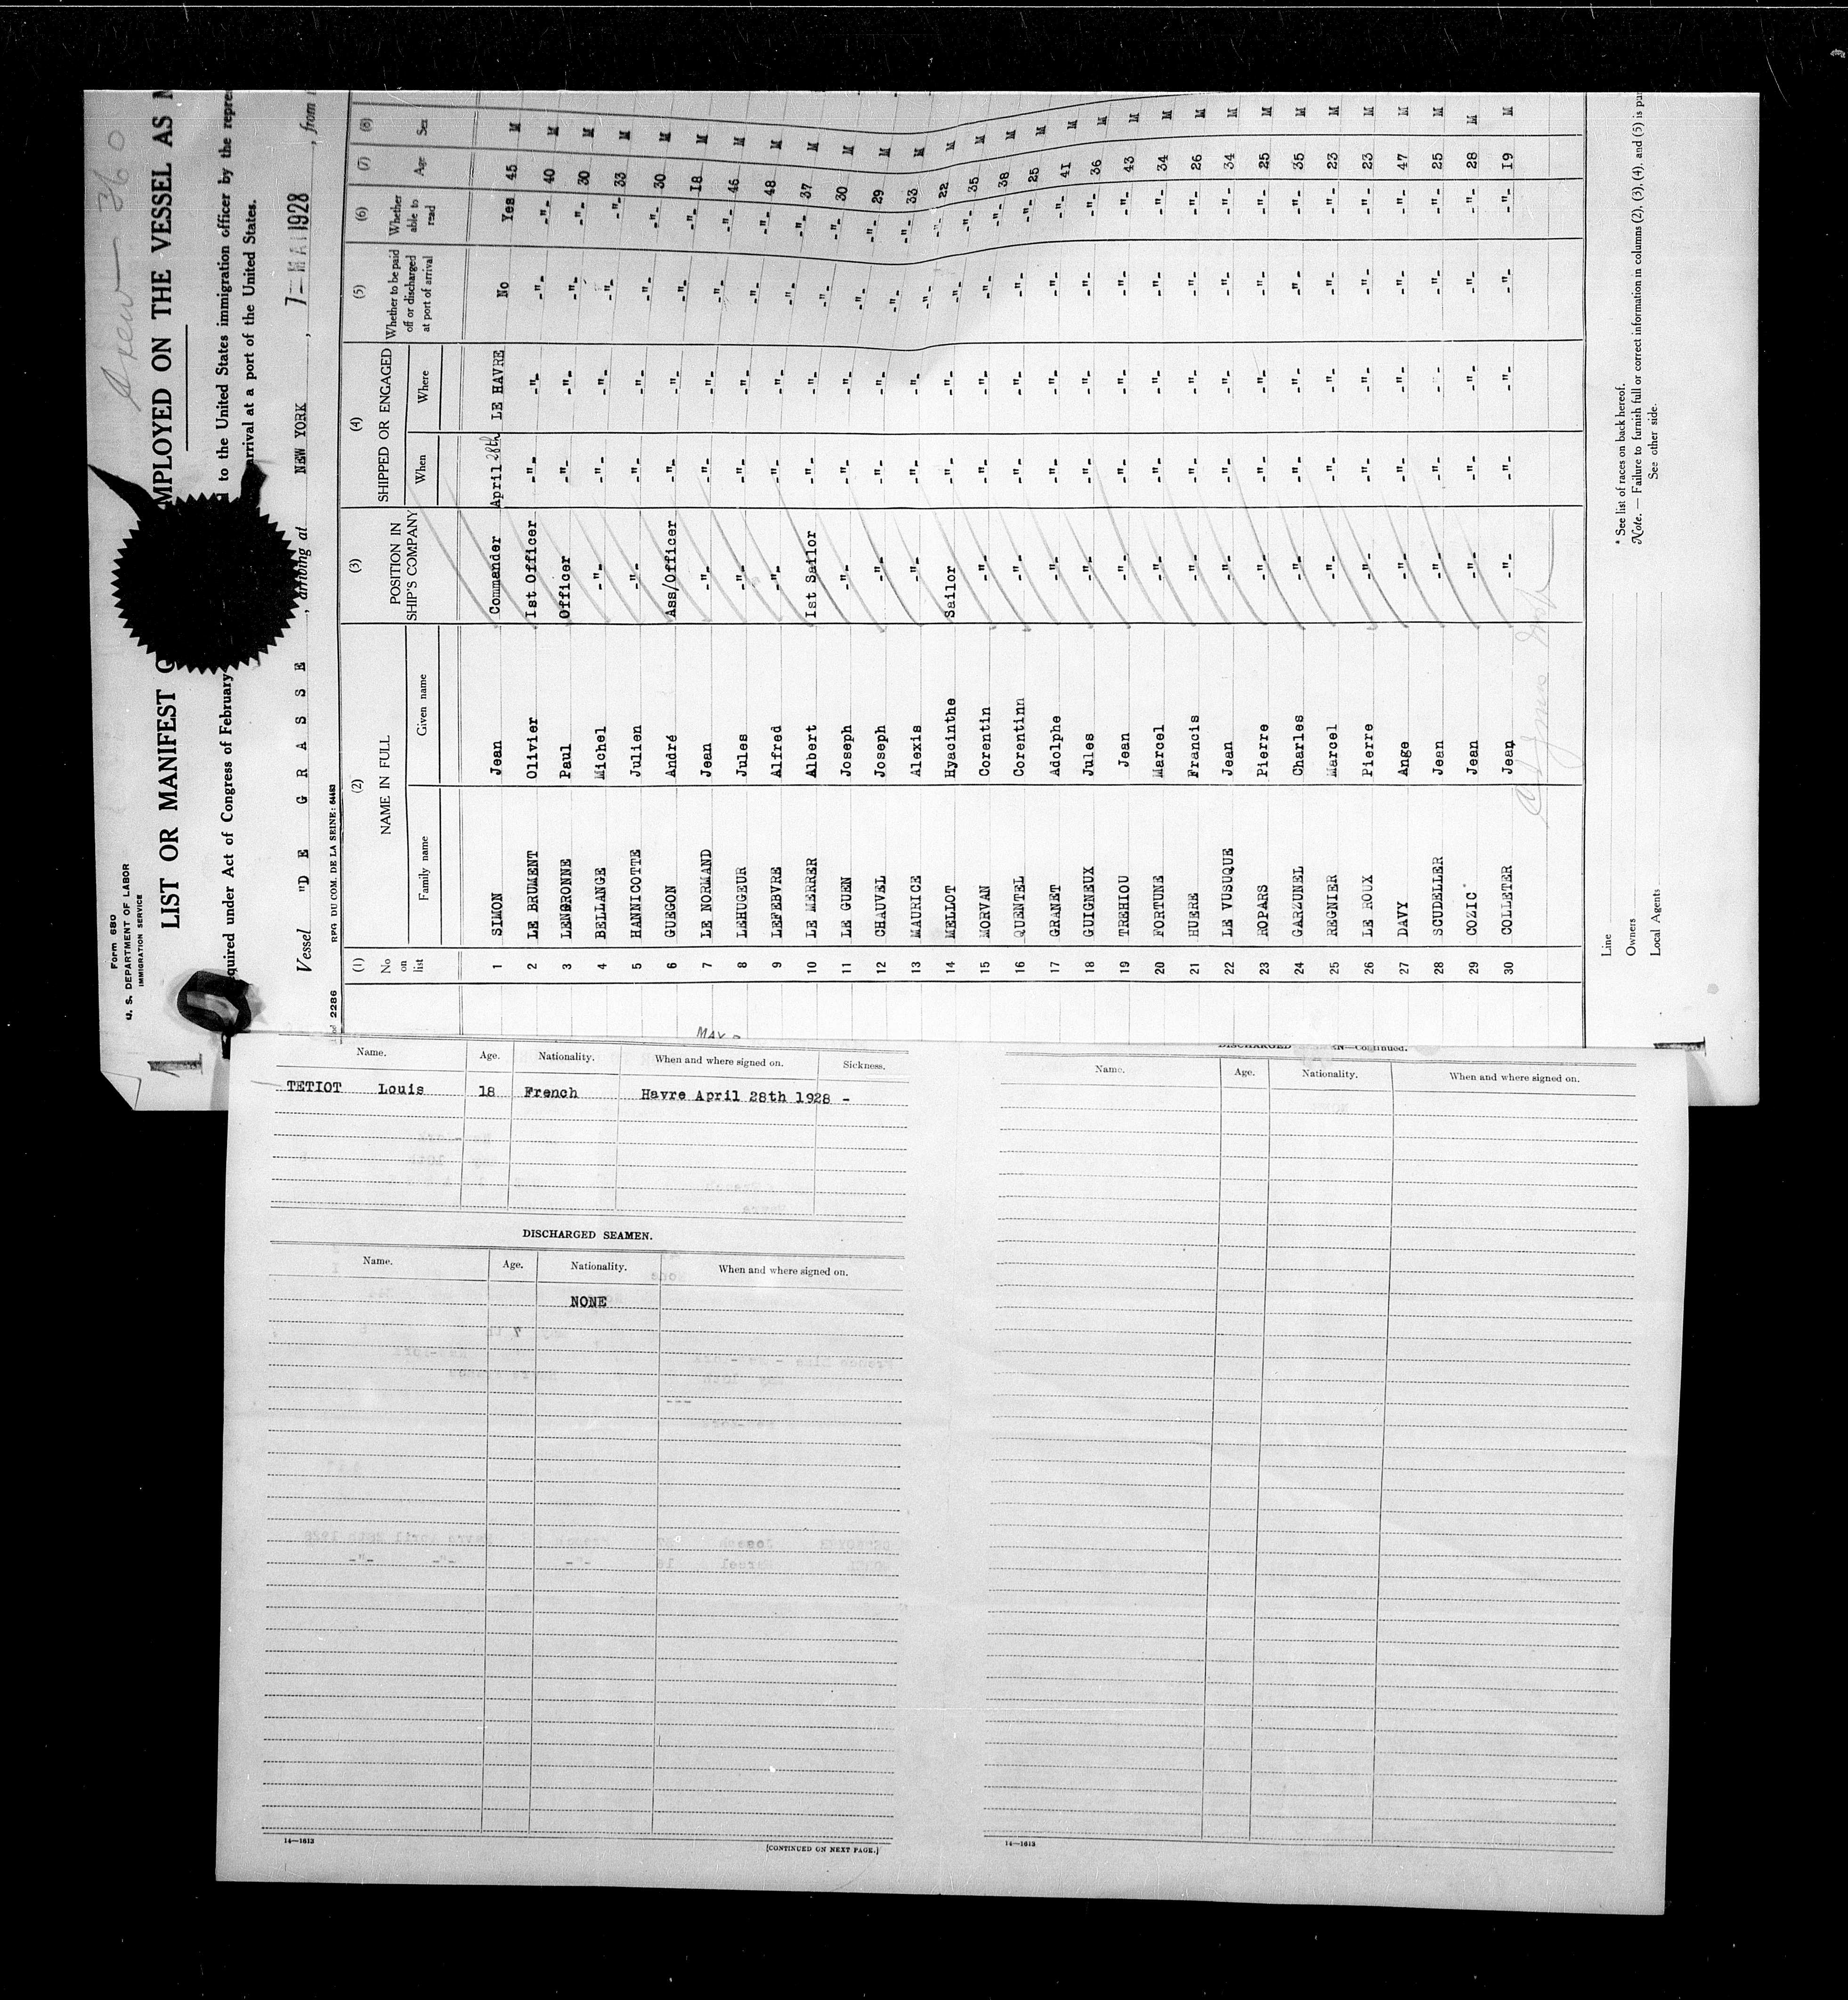 Form 680
U. S. DEPARTMENT OF LABOR
IMMIGRATION SERVICE
Crew — 360
LIST OR MANIFEST MPLOYED ON THE VESSEL AS
quired under Act of Congress of February to the United States immigration officer by the repre
arrival at a port of the United States.
Vessel "D E G R A S S E , arriving at NEW YORK , 7 – MAI 1928 , from
2286 RPG DU COM. DE LA SEINE: 64483
(1) (2) (3) (4) (5) (6) (7) (8)
No on list NAME IN FULL POSITION IN SHIP'S COMPANY SHIPPED OR ENGAGED Whether to be paid off or discharged at port of arrival Whether able to read Age Sex
Family name Given name When Where
1 SIMON Jean Commander April 28th LE HAVRE No Yes 45 M
2 LE BRUMENT Olivier 1st Officer -"- -"- -"- -"- 40 M
3 LENGRONNE Paul Officer -"- -"- -"- -"- 30 M
4 BELLANGE Michel -"- -"- -"- -"- -"- 33 M
5 HANNICOTTE Julien -"- -"- -"- -"- -"- 30 M
6 GUEGON André Ass/Officer -"- -"- -"- -"- 18 M
7 LE NORMAND Jean -"- -"- -"- -"- -"- 46 M
8 LEHUGEUR Jules -"- -"- -"- -"- -"- 48 M
9 LEFEBVRE Alfred -"- -"- -"- -"- -"- 37 M
10 LE MERRER Albert 1st Sailor -"- -"- -"- -"- 30 M
11 LE GUEN Joseph -"- -"- -"- -"- -"- 29 M
12 CHAUVEL Joseph -"- -"- -"- -"- -"- 33 M
13 MAURICE Alexis -"- -"- -"- -"- -"- 22 M
14 MELLOT Hyacinthe Sailor -"- -"- -"- -"- 35 M
15 MORVAN Corentin -"- -"- -"- -"- -"- 38 M
16 QUENTEL Corentinn -"- -"- -"- -"- -"- 25 M
17 GRANET Adolphe -"- -"- -"- -"- -"- 41 M
18 GUIGNEUX Jules -"- -"- -"- -"- -"- 36 M
19 TREHIOU Jean -"- -"- -"- -"- -"- 43 M
20 FORTUNE Marcel -"- -"- -"- -"- -"- 34 M
21 HUERE Francis -"- -"- -"- -"- -"- 26 M
22 LE VUSUQUE Jean -"- -"- -"- -"- -"- 34 M
23 ROPARS Pierre -"- -"- -"- -"- -"- 25 M
24 GARZUNEL Charles -"- -"- -"- -"- -"- 35 M
25 REGNIER Marcel -"- -"- -"- -"- -"- 23 M
26 LE ROUX Pierre -"- -"- -"- -"- -"- 23 M
27 DAVY Ange -"- -"- -"- -"- -"- 47 M
28 SCUDELLER Jean -"- -"- -"- -"- -"- 25 M
29 COZIC Jean -"- -"- -"- -"- -"- 28 M
30 COLLETER Jean -"- -"- -"- -"- -"- 19 M
Line
Owners
Local Agents
* See list of races on back hereof.
Note. — Failure to furnish full or correct information in columns (2), (3), (4), and (5) is pu
See other side.
MAY
Name. Age. Nationality. When and where signed on. Sickness.
TETIOT Louis 18 French Havre April 28th 1928 -
DISCHARGED SEAMEN.
Name. Age. Nationality. When and where signed on.
NONE
14—1613
[CONTINUED ON NEXT PAGE.]
DISCHARGED N—Continued.
Name. Age. Nationality. When and where signed on.
14—1613